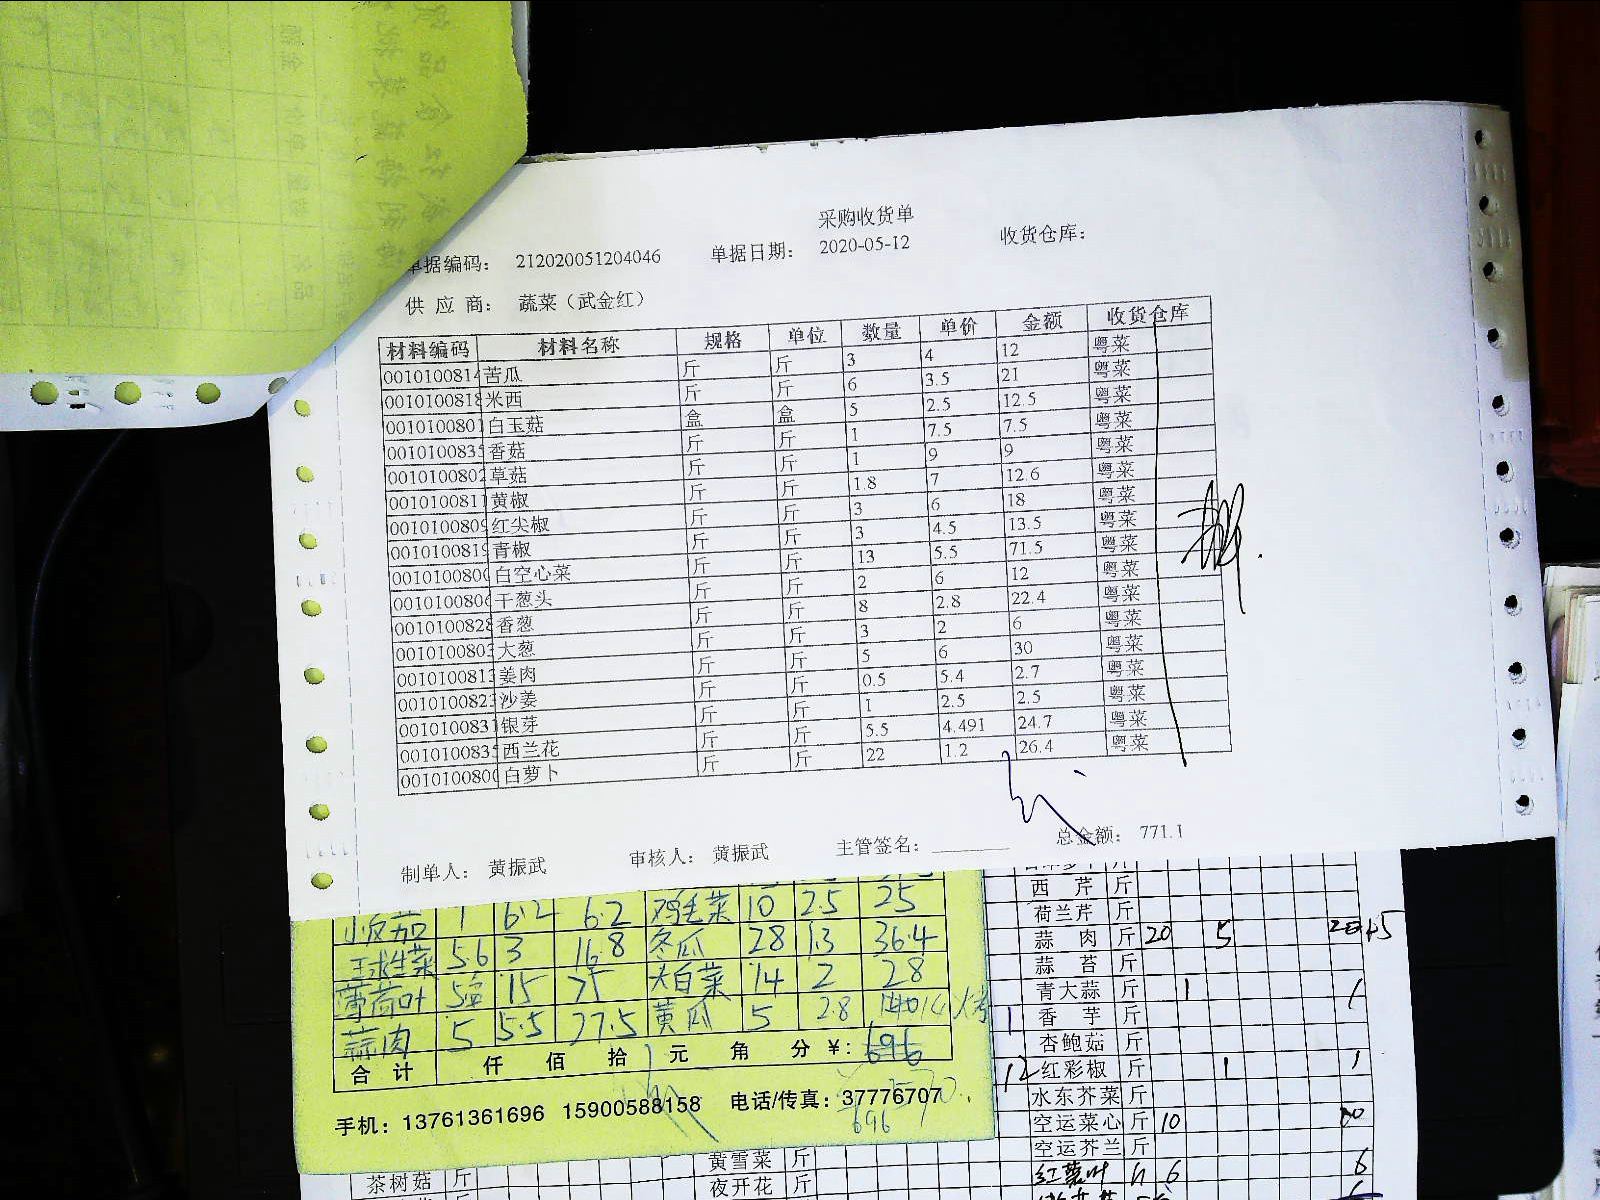 采购收货单
单据编码： 212020051204046 单据日期： 2020-05-12 收货仓库：
供 应 商： 蔬菜（武金红）
材料编码 材料名称 规格 单位 数量 单价 金额 收货仓库
0010100814 苦瓜 斤 斤 3 4 12 粤菜
0010100818 米西 斤 斤 6 3.5 21 粤菜
0010100801 白玉菇 盒 盒 5 2.5 12.5 粤菜
0010100835 香菇 斤 斤 1 7.5 7.5 粤菜
0010100802 草菇 斤 斤 1 9 9 粤菜
0010100811 黄椒 斤 斤 1.8 7 12.6 粤菜
0010100809 红尖椒 斤 斤 3 6 18 粤菜
0010100819 青椒 斤 斤 3 4.5 13.5 粤菜
0010100800 白空心菜 斤 斤 13 5.5 71.5 粤菜
0010100806 干葱头 斤 斤 2 6 12 粤菜
0010100828 香葱 斤 斤 8 2.8 22.4 粤菜
0010100803 大葱 斤 斤 3 2 6 粤菜
0010100813 姜肉 斤 斤 5 6 30 粤菜
0010100823 沙姜 斤 斤 0.5 5.4 2.7 粤菜
0010100831 银芽 斤 斤 1 2.5 2.5 粤菜
0010100835 西兰花 斤 斤 5.5 4.491 24.7 粤菜
0010100800 白萝卜 斤 斤 22 1.2 26.4 粤菜
制单人： 黄振武 审核人： 黄振武 主管签名： 总金额： 771.1
1 6.2 6.2 鸡毛菜 10 2.5 25
球生菜 5.6 3 16.8 冬瓜 28 1.3 36.4
薄荷叶 5盒 15 75 大白菜 14 2 28
蒜肉 5 5.5 27.5 黄瓜 5 2.8 14
合 计 仟 佰 拾 元 角 分 ¥: 696
手机：13761361696 15900588158 电话/传真：37776707
696
西 芹 斤
荷兰芹 斤
蒜 肉 斤 20 5 20+5
蒜 苔 斤
青大蒜 斤 1 1
香 芋 斤
杏鲍菇 斤
红彩椒 斤 1 1
水东芥菜 斤
空运菜心 斤 10 10
空运芥兰 斤
红菜叶 6 6
茶树菇 斤
黄雪菜 斤
夜开花 斤